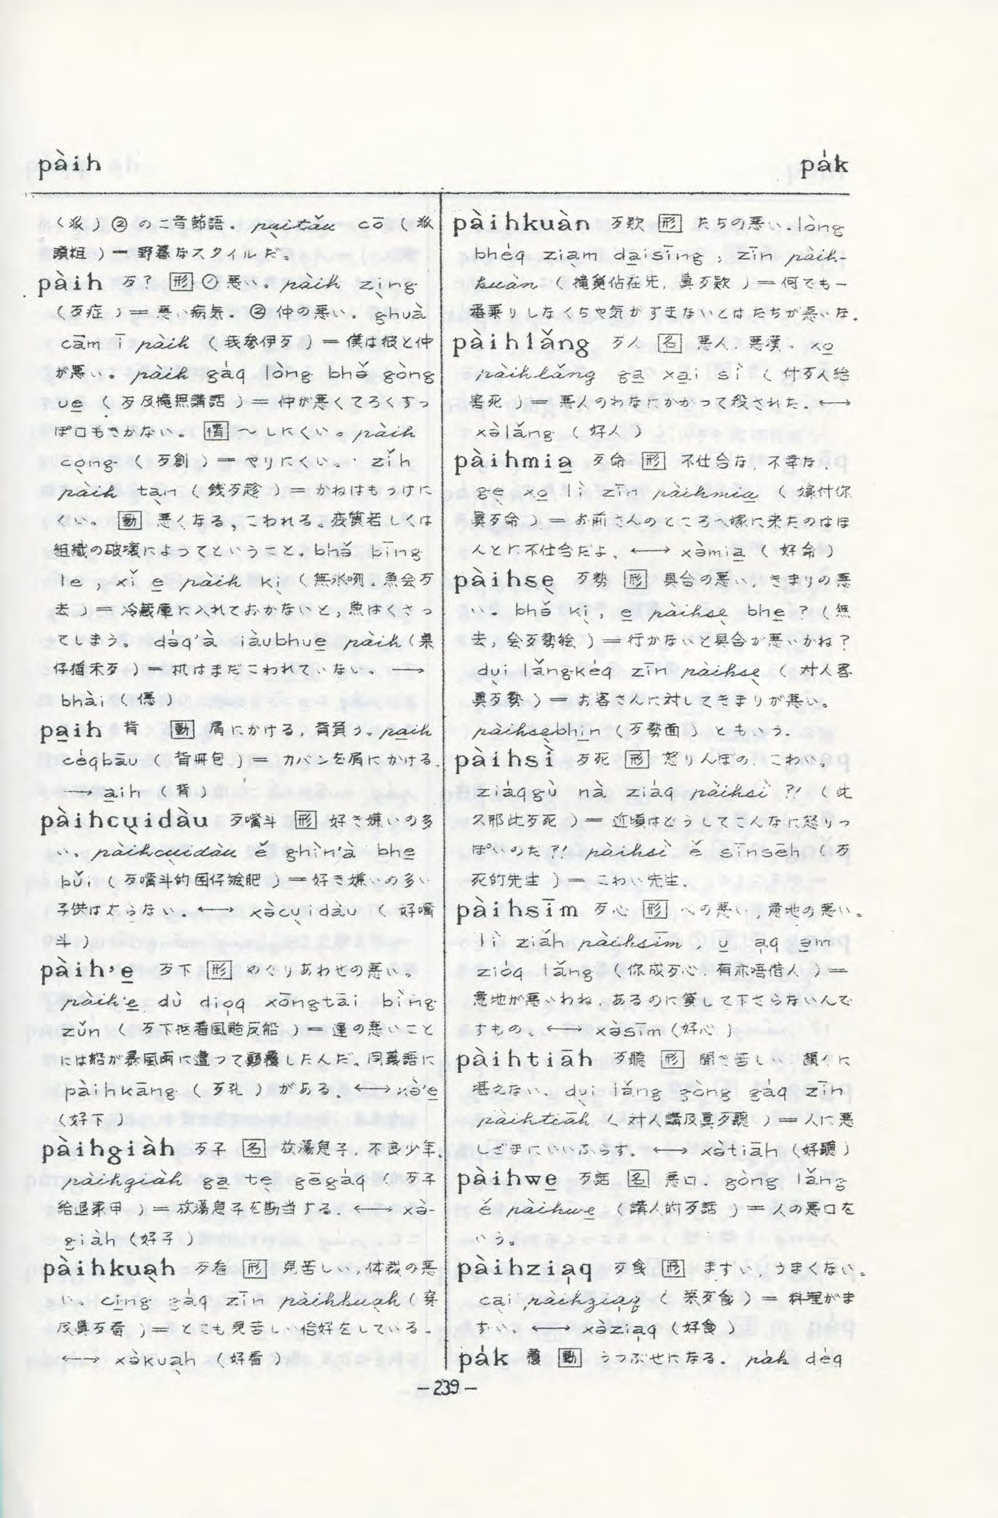 pàih
pák
(派)②の二音節語。pāitǎu cō (派
頭粗)ー野暮なスタイルだ。
pàih 歹? 形 ①悪い。pàih zìng
(歹症)＝悪い病気。②仲の悪い。ghuà
cām ī pàih (我參伊歹)＝僕は彼と仲
が悪い。pàih gáq lòng bhǒ gòng
ue (歹及攏無講話)＝仲が悪くてろくすっ
ぽ口もきかない。情 〜しにくい。pàih
cong (歹創)＝やりにくい。 zǐh
pàih tan (錢歹趁)＝かねはもうけに
くい。動 悪くなる、こわれる。変質若しくは
組織の破壊によってということ。bhǒ bīng
le, xǐ e pàih kì (無冰咧,魚会歹
去)＝冷蔵庫に入れておかないと,魚はくさっ
てしまう。dóq'à iàubhue pàih (桌
仔猶未歹)＝机はまだこわれていない。⟶
bhài (僫)
paih 背 動 肩にかける,背負う。paih
céqbāu (背冊包)＝カバンを肩にかける。
⟶ aih (背)
pàihcuidàu 歹嘴斗 形 好き嫌いの多
い。pàihcuidàu ě ghìn'à bhe
bǔi (歹嘴斗的囡仔 肥)＝好き嫌いの多い
子供は太らない。⟷ xòcuidàu (好嘴
斗)
pàih'e 歹下 形 めぐりあわせの悪い。
pàih'e dù dioq xōngtāi bìng
zǔn (歹下 着風颱反船)＝運の悪いこと
には船が暴風雨に遭って顚覆したんだ。同義語に
pàihkāng (歹孔)がある。⟷ xò'e
(好下)
pàihgiàh 歹子 名 放蕩息子,不良少年。
pàihgiàh ga te gēgáq (歹子
給退家甲)＝放蕩息子を勘当する。⟷ xò-
giàh (好子)
pàihkuah 歹看 形 見苦しい,体裁の悪
い。cing gáq zīn pàihkuah (穿
及真歹看)＝とても見苦しい恰好をしている。
⟷ xòkuah (好看)
pàihkuàn 歹款 形 たちの悪い。lòng
bhéq ziam daisīng, zīn pàih-
kuàn (攏 佔在先,真歹款)＝何でも一
番乗りしなくちゃ気がすまないとはたちが悪いな。
pàihlǎng 歹人 名 悪人,悪漢。xo
pàihlǎng ga xai sì (付歹人給
害死)＝悪人のわなにかかって殺された。⟷
xòlǎng (好人)
pàihmia 歹命 形 不仕合な,不幸な。
ge xo lì zīn pàihmia (嫁付你
真歹命)＝お前さんのところへ嫁に来たのはほ
んとに不仕合だよ。⟷ xòmia (好命)
pàihse 歹勢 形 具合の悪い,きまりの悪
い。bhǒ kì, e pàihse bhe? (無
去,会歹勢 )＝行かないと具合が悪いかね?
dui lǎngkéq zīn pàihse (対人客
真歹勢)＝お客さんに対してきまりが悪い。
pàihsebhin (歹勢面)ともいう。
pàihsì 歹死 形 怒りんぼの,こわい。
ziáqgù nà ziáq pàihsì ?! (此
久那此歹死)＝近頃はどうしてこんなに怒りっ
ぽいのだ?! pàihsì ě sīnsēh (歹
死的先生)＝こわい先生。
pàihsīm 歹心 形 心の悪い,意地の悪い。
lì ziǎh pàihsīm, u aq em
zióq lǎng (你成歹心,有亦唔借人)＝
意地が悪いわね,あるのに貸して下さらないんで
すもの。⟷ xòsīm (好心)
pàihtiāh 歹聽 形 聞き苦しい,聞くに
堪えない。dui lǎng gòng gáq zīn
pàihtiāh (対人講及真歹聽)＝人に悪
しざまにいいふらす。⟷ xòtiāh (好聽)
pàihwe 歹話 名 悪口。gòng lǎng
ě pàihwe (講人的歹話)＝人の悪口を
いう。
pàihziaq 歹食 形 まずい,うまくない。
cai pàihziaq (菜歹食)＝料理がま
ずい。⟷ xòziaq (好食)
pák 覆 動 うつぶせになる。pák dèq
－239－